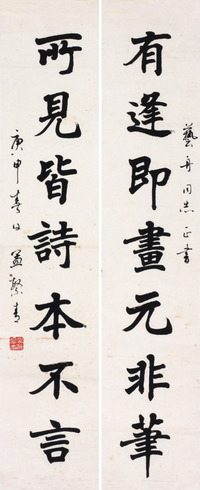 藝舟同志正書
有逢即畫元非筆
所見皆詩本不言
庚申春日孟繁青